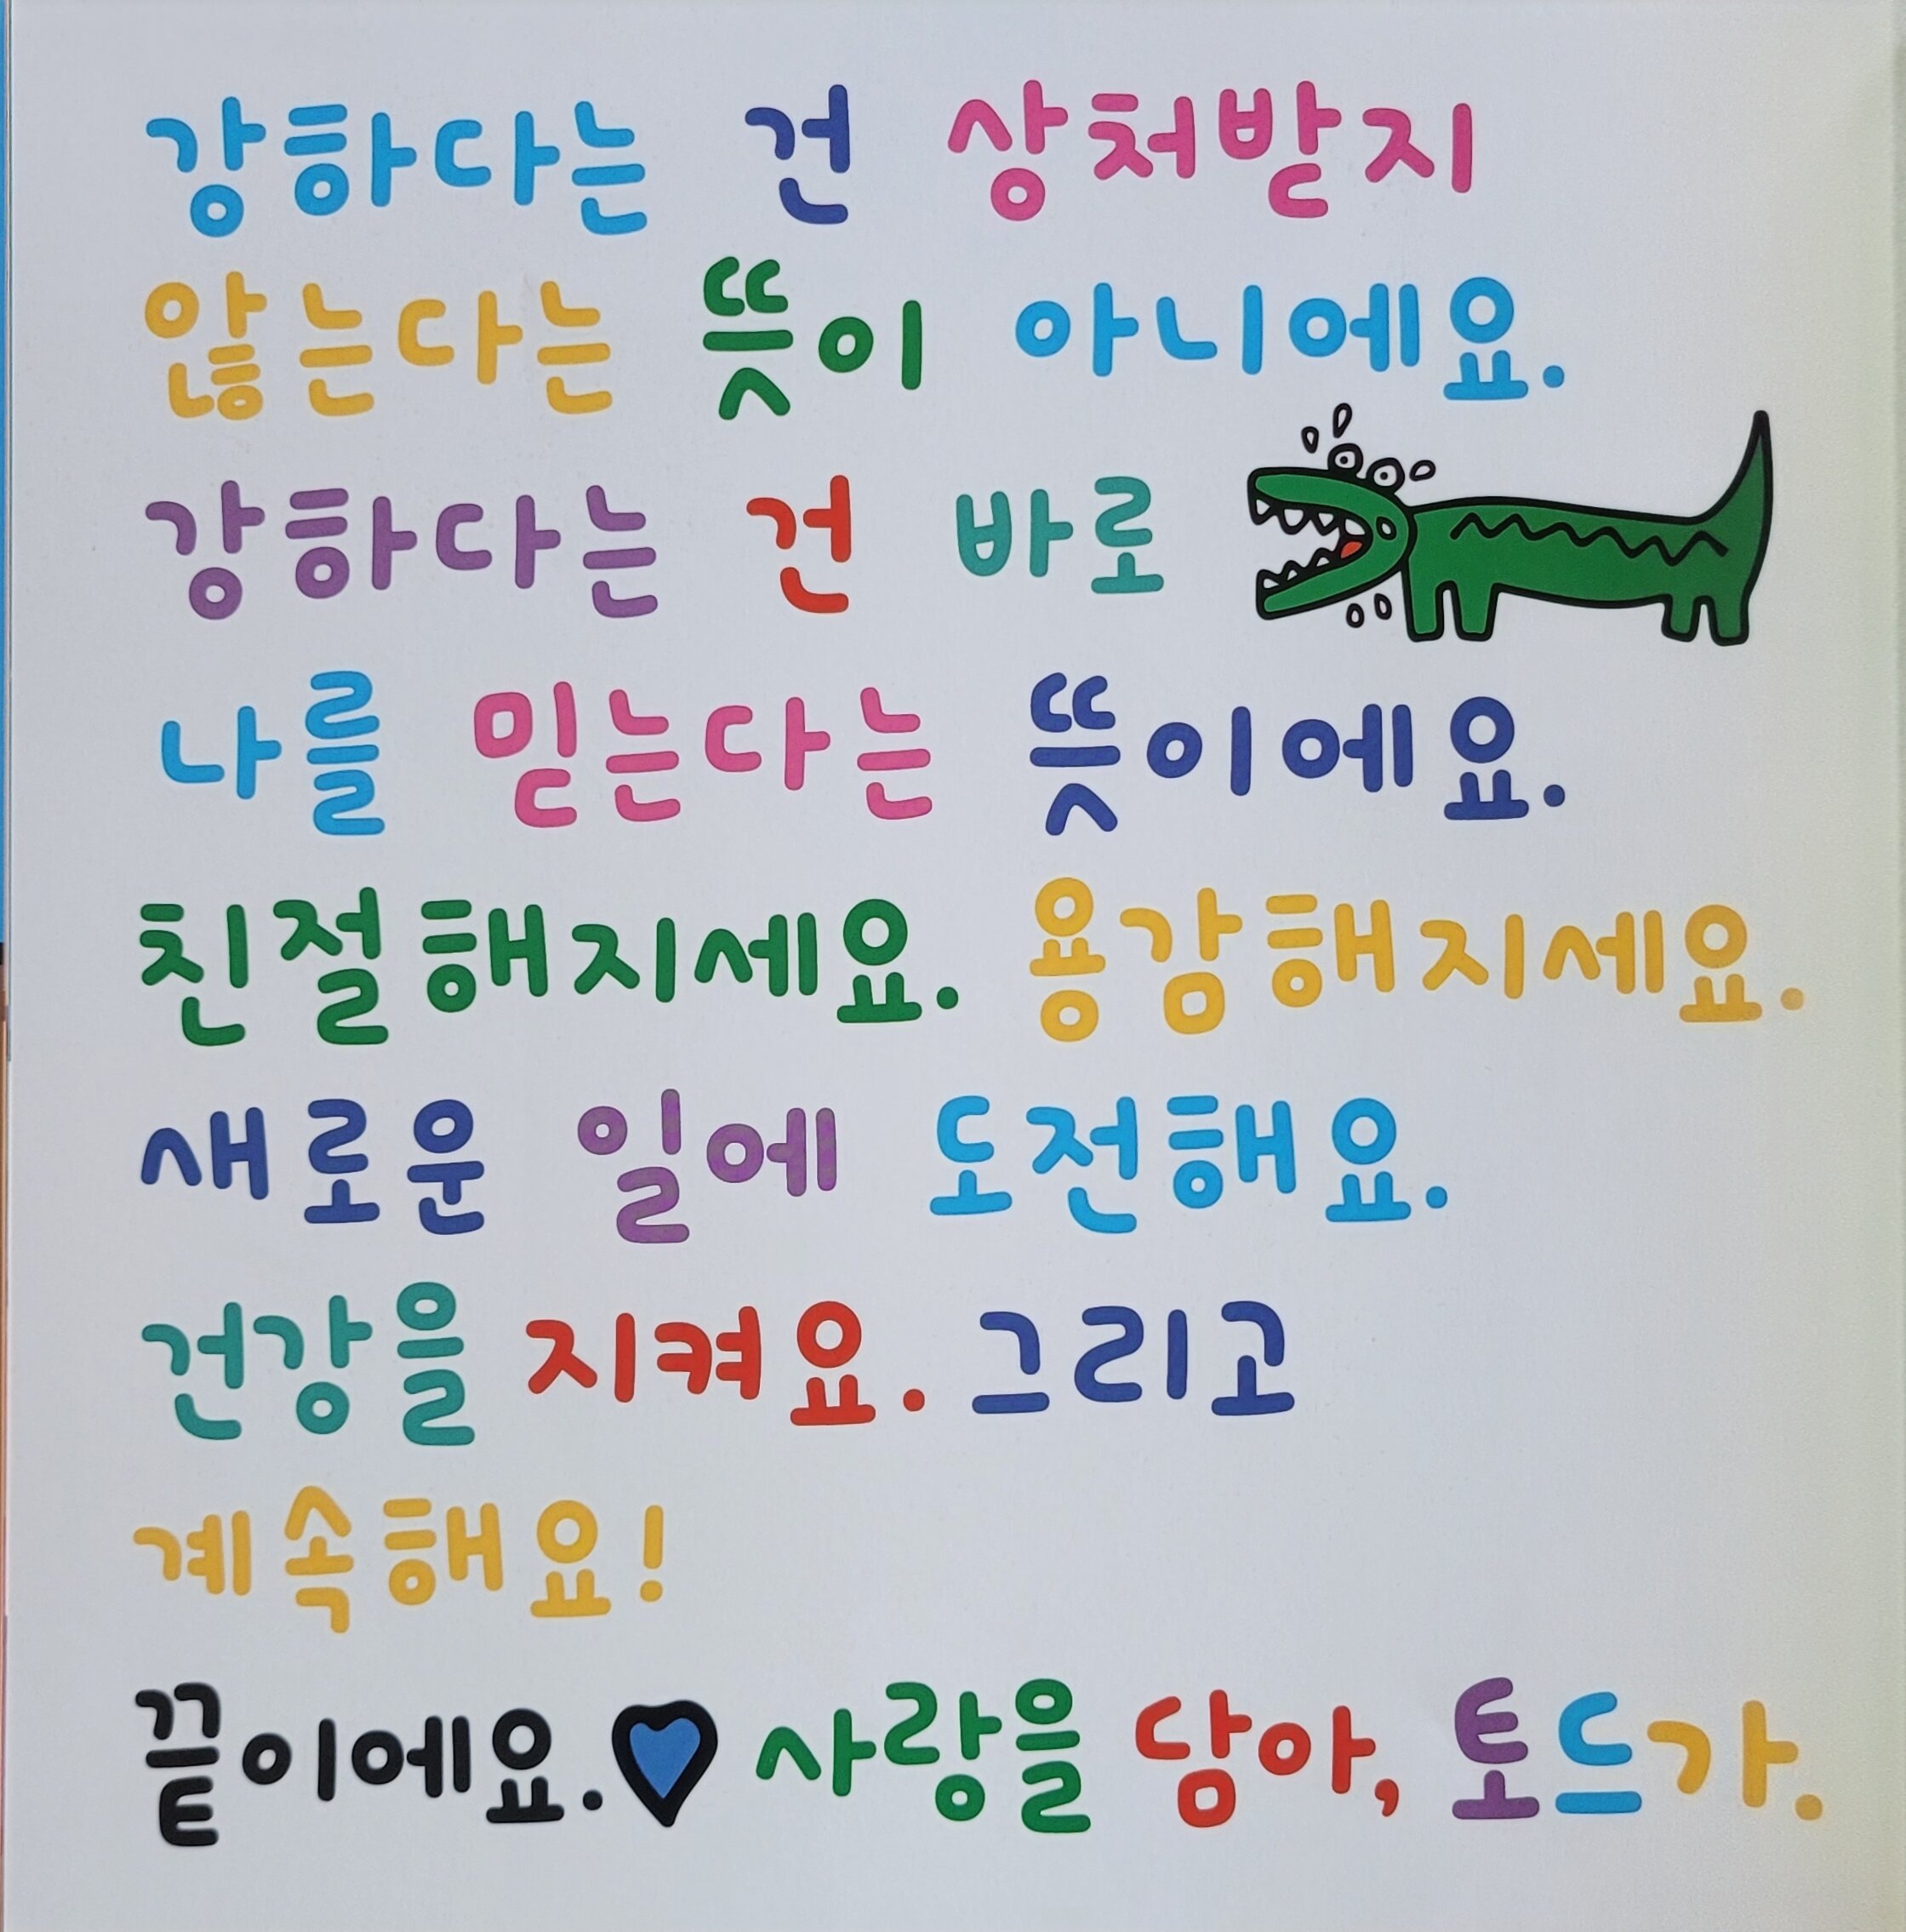 강하다는 건 상처받지
않는다는 뜻이 아니에요.
강하다는 건 바로
나를 믿는다는 뜻이에요.
친절해지세요. 용감해지세요.
새로운 일에 도전해요.
건강을 지켜요. 그리고
계속해요!
끝이에요. 사랑을 담아, 토드가.